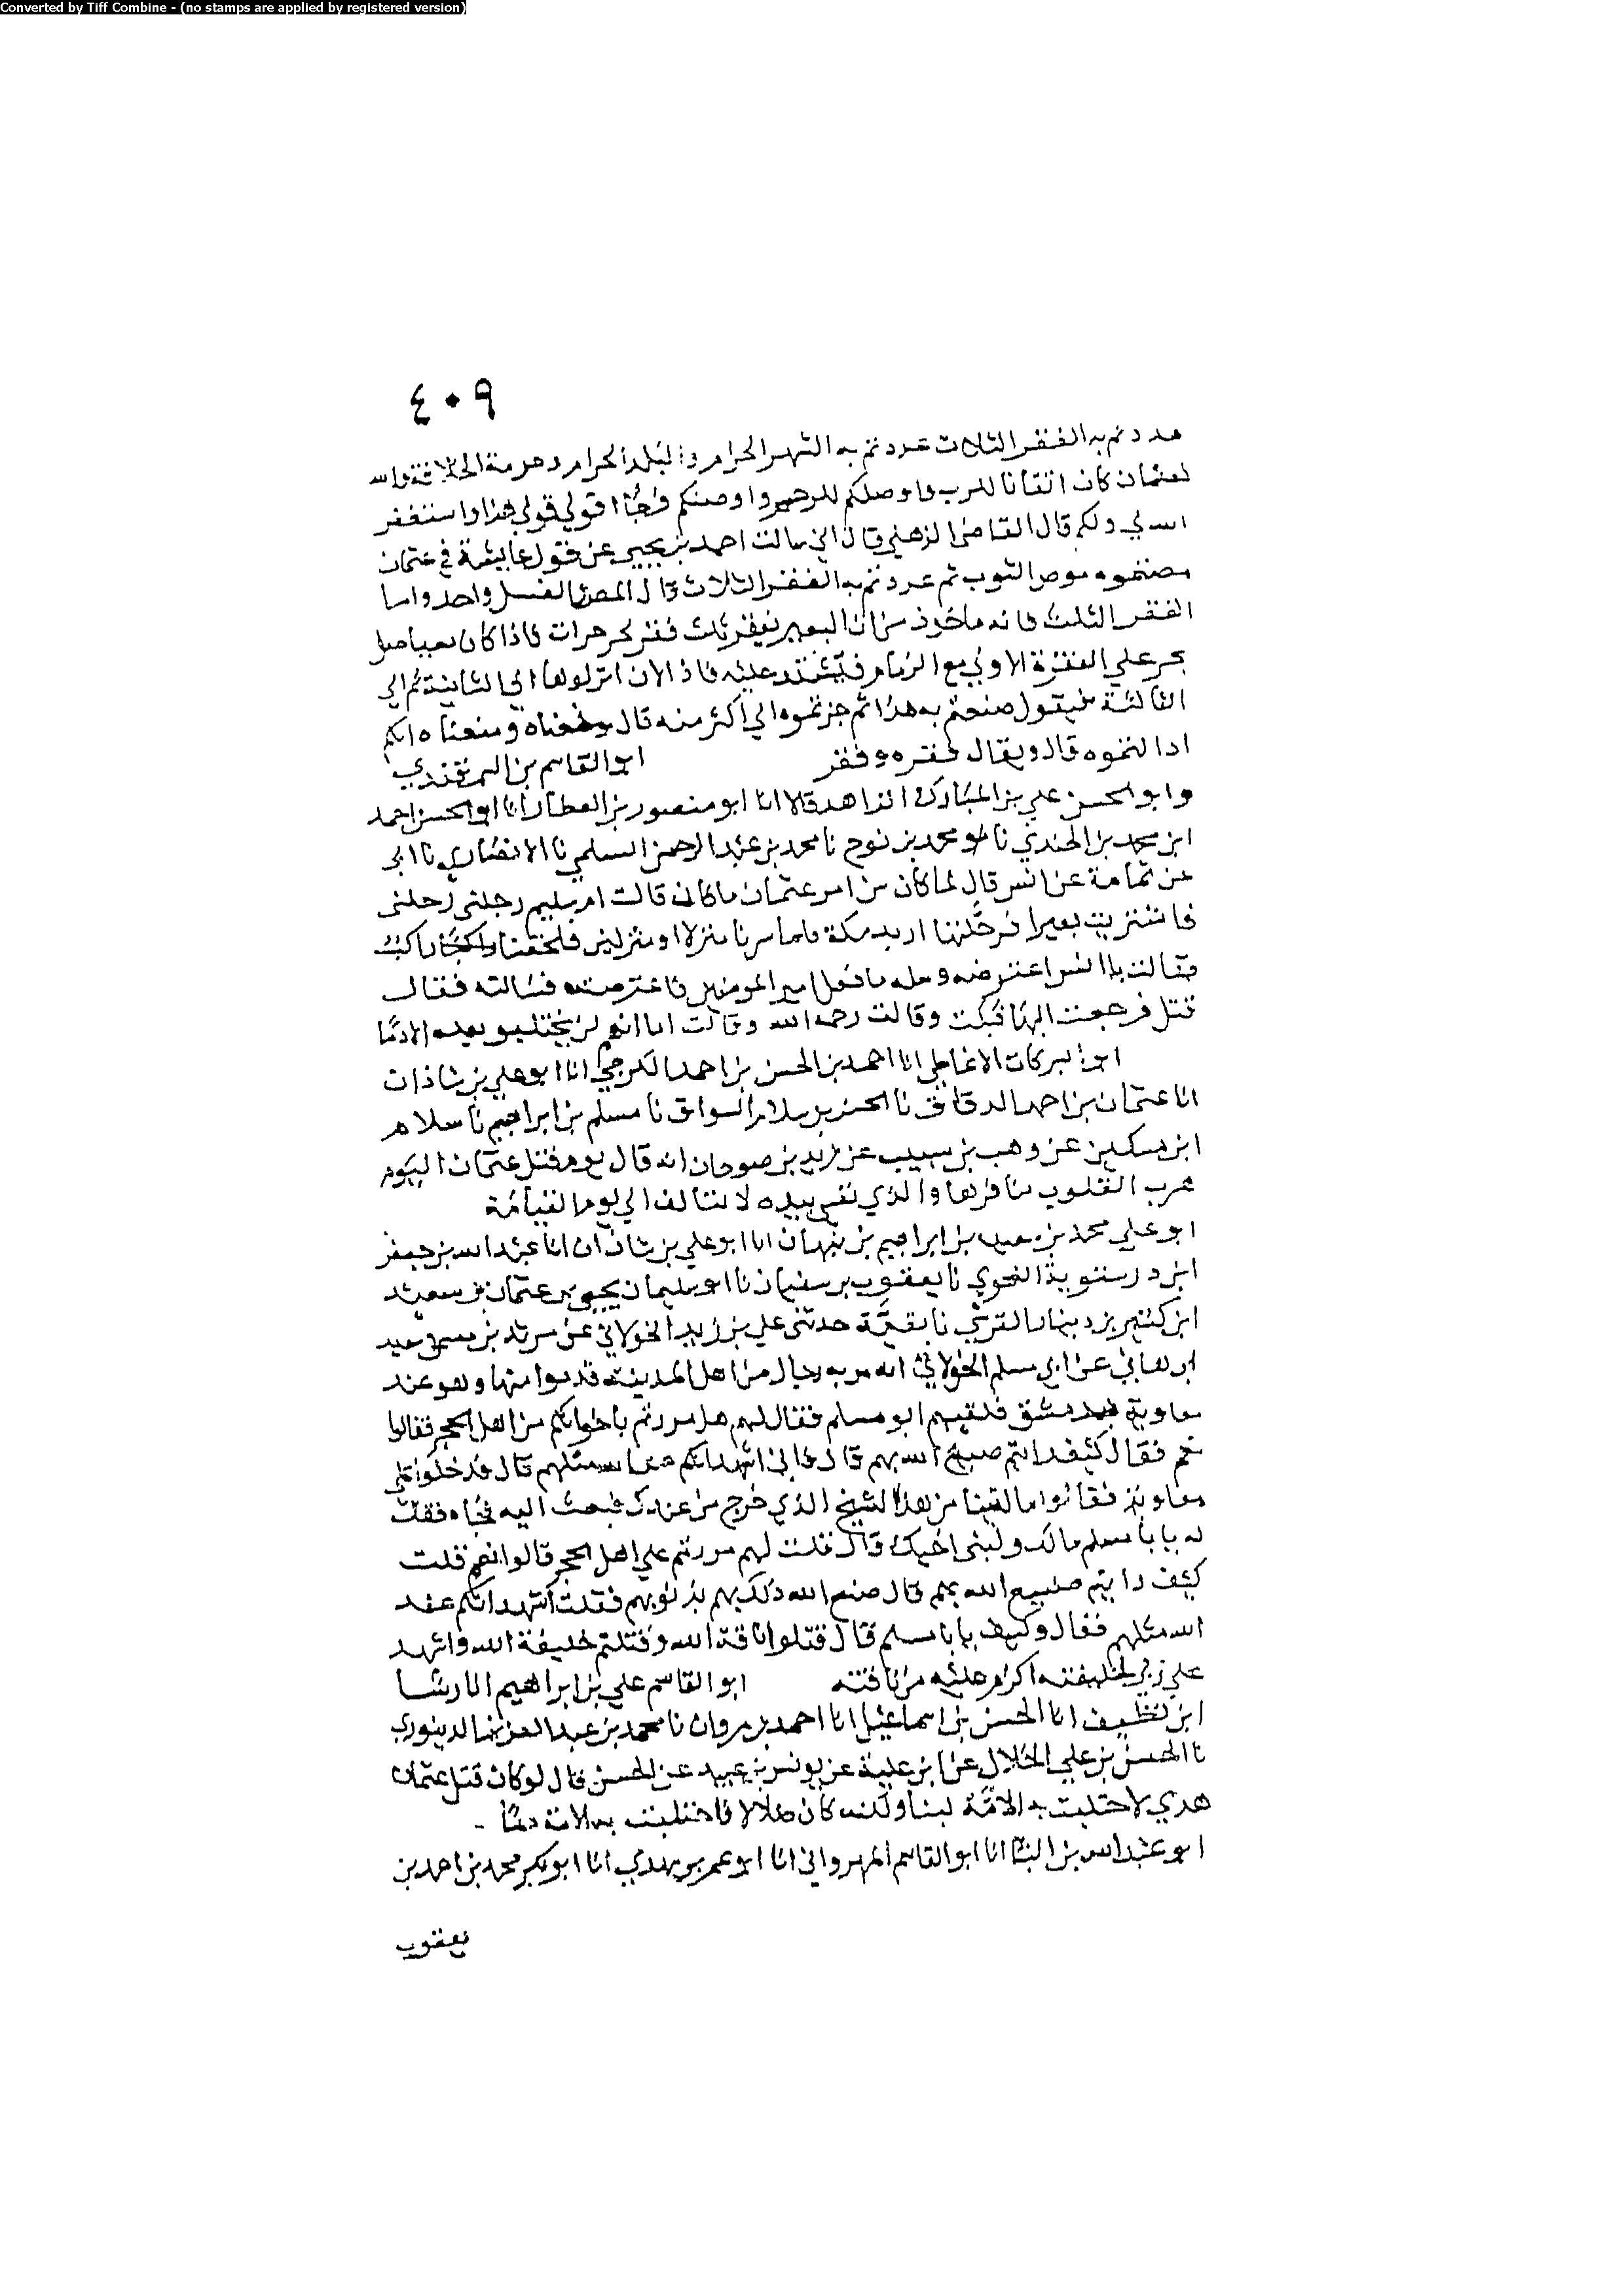 Converted by Tiff Combine - (no stamps are applied by registered version)
٤٠٩
عددتم به الفقر الثلاث عددتم به الشهر الحرام والبلد الحرام وحرمة الخلافة والله
لعثمان كان اتقانا للرب واوصلكم للرحم واحصنكم فرجا اقولي قولي هذا واستغفر
الله لي ولكم قال القاضي الزهني قال ابي سالت احمد بن يحيى عن قول عايشة في عثمان
مصتموه موص الثوب ثم عددتم به الفقر الثلاث قال الموص الغسل واحد واما
الفقر الثلث فانه ماخوذ من ان البعير يفقر ثلث فقر
بحر علي الفقرة الاولي مع الزمام فيشتد عليه فاذا لان انزلوها الي الثانية ثم الي
الثالثة فيقول صنعتم به هذا ثم جزتموه الي اكثر منه قال
قال ويقال فقره وفقر ابو القاسم بن السمرقندي
وابو الحسن علي بن المبارك الزاهد قالا انا ابو منصور بن العطار انا ابو الحسن احمد
ابن محمد بن الجندي نا محمد بن نوح نا محمد بن عبد الرحمن السلمي نا الانصاري نا ابي
عن ثمامة عن انس قال لما كان من امر عثمان ما كان قالت ام سليم رحلني رحلني
فاشتريت بعيرا فرحلتها اريد مكة فلما سرنا منزلا او منزلين فلحقنا راكب
فقالت يا انس اعترضه وسله ما فعل امير المومنين فاعترضته فسالته فقال
قتل فرجعت اليها فبكت وقالت رحمه الله وقالت اما انهم لن يحتلبوا بعده الا دما
ابو البركات الانماطي انا احمد بن الحسن بن احمد الكرجي انا ابو علي بن شاذان
انا عثمان بن احمد الدقاق نا الحسن بن سلام السواق نا مسلم بن ابراهيم نا سلام
ابن مسكين عن وهب بن شبيب عن زيد بن صوحان انه قال يوم قتل عثمان اليوم
القلوب منافرها والذي نفسي بيده لا تتالف الي يوم القيامة
ابو علي محمد بن سعيد بن ابراهيم بن نبهان انا ابو علي بن شاذان انا عبد الله بن جعفر
ابن درستوية النحوي نا يعقوب بن سفيان نا ابو سليمان يحيى بن عثمان بن سعيد
ابن كثير بن دينار القرشي نا بقية حدثني علي بن زبيد الخولاني عن مرثد بن سمي عن
ابن هاني عن ابي مسلم الخولاني انه مر به رجال من اهل المدينة قدموا منها وهو عند
معاوية بدمشق فلقيهم ابو مسلم فقال لهم هل مررتم باخوانكم من اهل الحجر فقالوا
نعم فقال كيف رايتم صنيع الله بهم قال فاني اشهد انكم عند الله مثلهم قال فدخلوا علي
معاوية فقالوا ما لقينا من هذا الشيخ الذي خرج من عندك فبعث اليه فجاه فقال
له يا با مسلم مالك ولبني اخيك قال قلت لهم مررتم علي اهل الحجر قالوا نعم قلت
كيف رايتم صنيع الله بهم قال صنع الله ذلك بهم بذنوبهم فقلت اشهد انكم عند
الله مثلهم فقال وكيف يا با مسلم قال قتلوا ناقة الله وقتلتم خليفة الله واشهد
علي ربي لخليفته اكرم عليه من ناقته ابو القاسم علي بن ابراهيم انا رشا
ابن نظيف انا الحسن بن اسماعيل انا احمد بن مروان نا محمد بن عبد العزيز الدينوري
نا الحسن بن علي الخلال عن ابن علية عن يونس بن عبيد عن الحسن قال لو كان قتل عثمان
هدي لاحتلبت به الامة لبنا ولكنه كان ضلالا فاحتلبت به الامة دما -
ابو عبد الله بن البنا انا ابو القاسم المهرواني انا ابو عمر بن مهدي انا ابو بكر محمد بن احمد بن
يعقوب